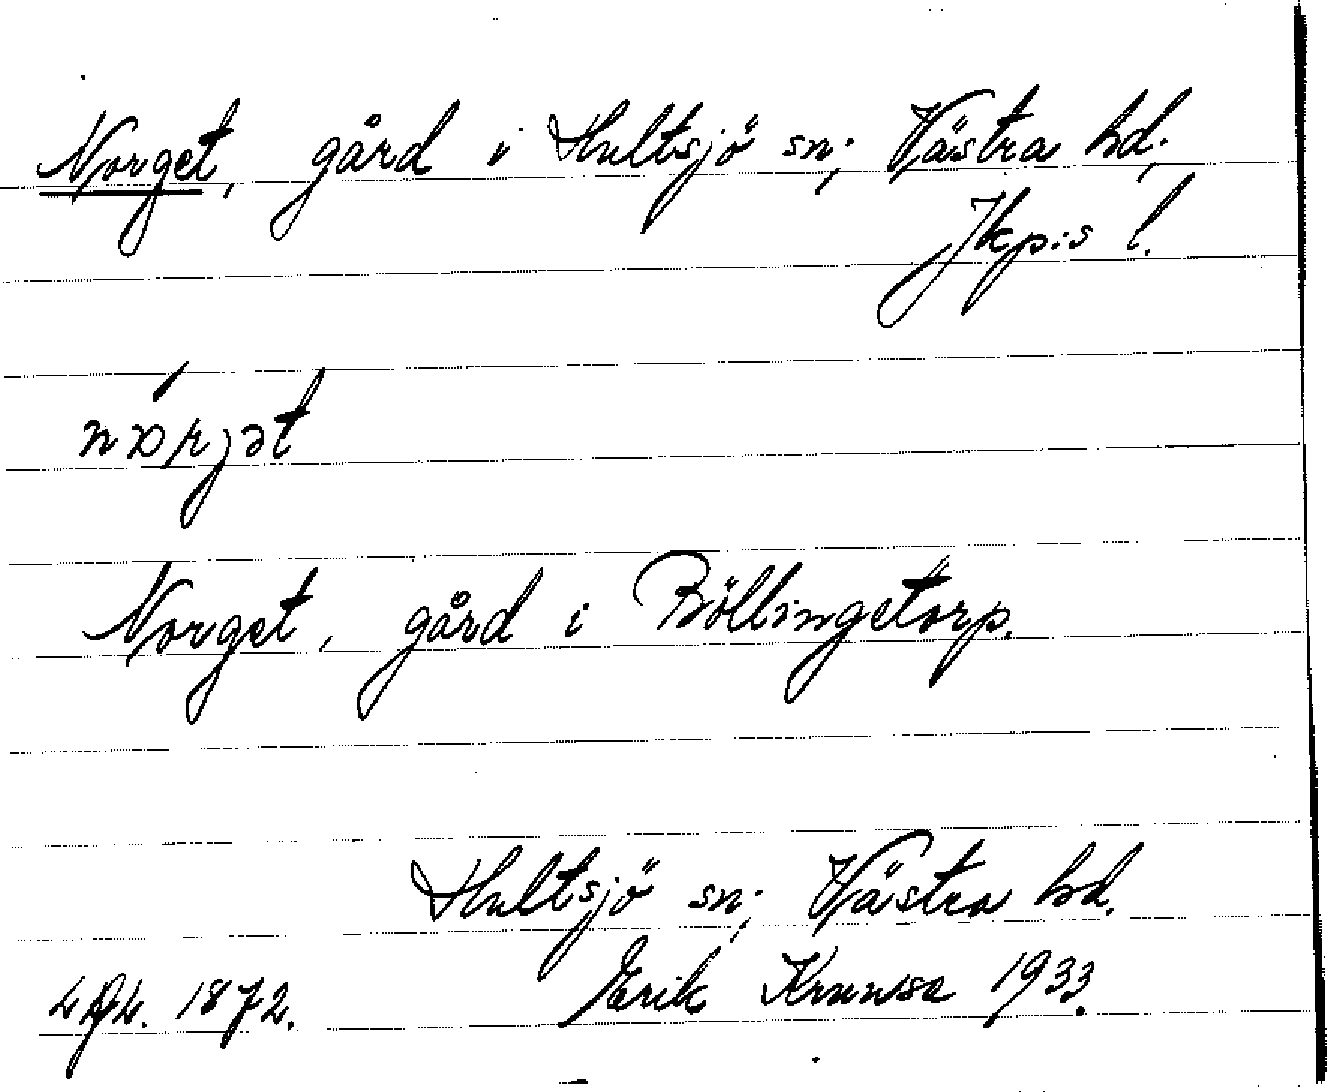 Norget, gård i Hultsjö sn; Västra hd,
Jkp:s l.
Norget, gård i Böllingetorp.
Hultsjö sn; Västra hd.
1872. Erik Krunsa 1933.